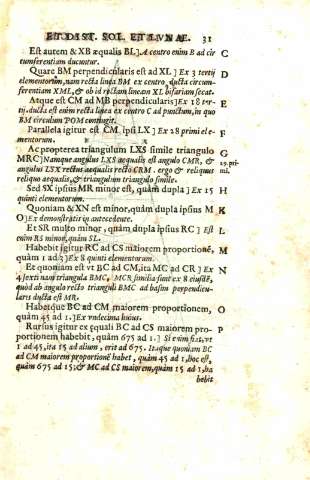 ET DIST. SOL. ET LVNAE. 31
Est autem & XB æqualis BL] A centro enim B ad cir C
tumferentiam ducuntur.
Quare BM perpendicularis est ad XL] Ex 3 tertij D
elementorum, nam recta linea BM ex centro, ducta circum-
ferentiam XML, & ob id rectam lineam XL bifariam secat.
Atque est CM ad MB perpendicularis] Ex 18 ter- E
tij. ducta est enim recta linea ex centro C ad punctum, in quo
BM circulum POM contingit.
Parallela igitur est CM ipsi LX] Ex 28 primi ele- F
mentorum.
Ac propterea triangulum LXS simile triangulo G
MRC] Namque angulus LXS aequalis est angulo CMR, & 29. pri-
angulus LSX rectus aequalis recto CRM. ergo & reliquus mi.
reliquo aequalis, & triangulum triangulo simile.
Sed SX ipsius MR minor est, quàm dupla] Ex 15 H
quinti elementorum.
Quoniam & XN est minor, quàm dupla ipsius M K
O] Ex demonstratis in antecedente.
Et SR multo minor, quàm dupla ipsius RC] Est L
enim RS minor, quàm SL.
Habebit igitur RC ad CS maiorem proportionē, M
quàm 1 ad 3] Ex 8 quinti elementorum.
Et quoniam est vt BC ad CM, ita MC ad CR] Ex N
4 sexti nam triangula BMC, MCR similia sunt ex 8 eiusdē,
quòd ab angulo recto trianguli BMC ad basim perpendicu-
laris ducta est MR.
Habetque BC ad CM maiorem proportionem, O
quàm 45 ad 1.] Ex vndecima huius.
Rursus igitur ex ęquali BC ad CS maiorem pro- P
portionem habebit, quàm 675 ad 1.] Si enim fiat, vt
1 ad 45, ita 15 ad alium, erit ad 675. Itaque quoniam BC
ad CM maiorem proportionē habet, quàm 45 ad 1, hoc est,
quàm 675 ad 15; & MC ad CS maiorem, quàm 15 ad 1, ha
bebit